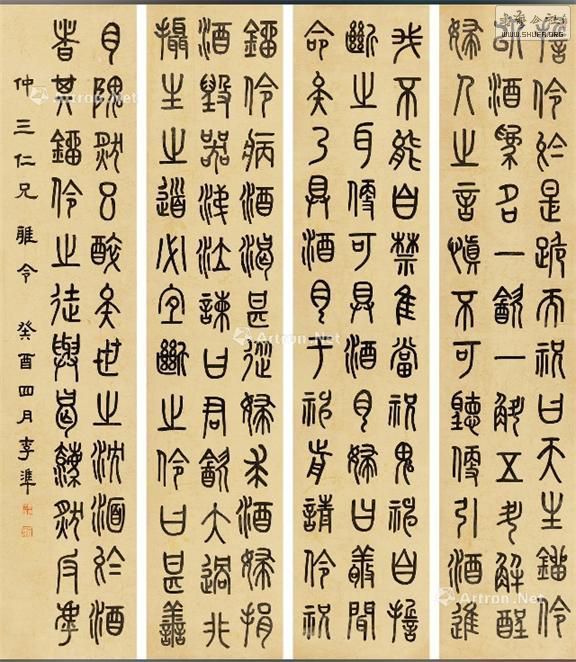 书法公社
誓伶於是跪而祝曰天生鎦伶
以酒為名一飲一斛五斗解酲
婦人之言慎不可聽便引酒進
我不能自禁隹當祝鬼神自誓
斷之耳便可具酒肉婦曰敬聞
命矣乃具酒肉于神前請伶祝
鎦伶病酒渴甚從婦求酒婦捐
酒毀器涕泣諫曰君飲太過非
攝生之道必宜斷之伶曰甚善
肉隗然已醉矣世之沈湎於酒
者其鎦伶之徒與曷然反
仲三仁兄雅令 癸酉四月李準
Artron.Net
Artron.Net
Artron.Net
Artron.Net
Artron.Net